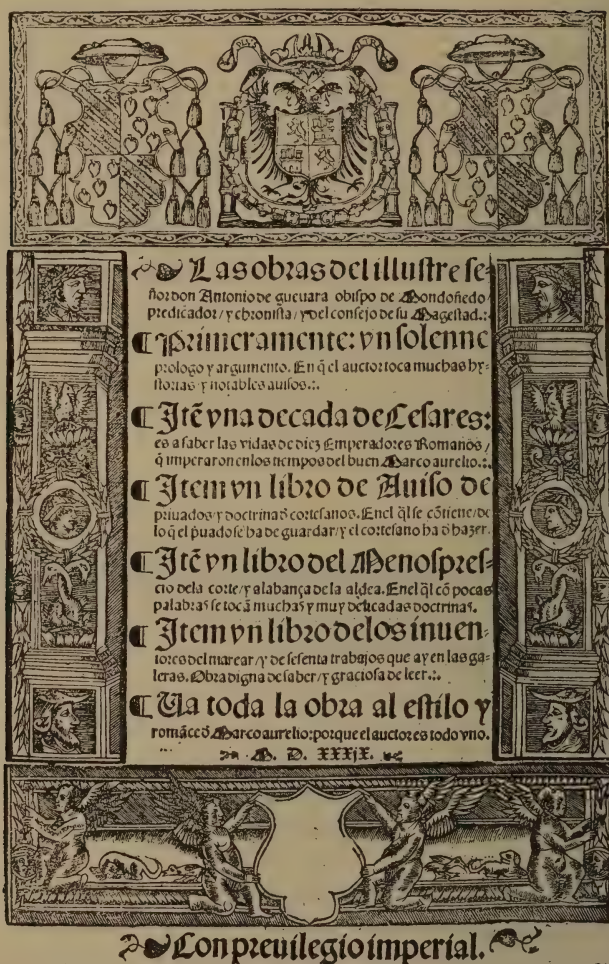 Las obras del illustre se-
ñor don Antonio de gueuara obispo de Mondoñedo/
predicador/ y chronista/ y del consejo de su Magestad.:.
¶ Primeramente: vn solenne
prologo y argumento. En q̃ el auctor toca muchas hy-
storias y notables auisos.:.
¶ Itẽ vna decada de Cesares:
es a saber las vidas de diez Emperadores Romanos/
q̃ imperaron en los tiempos del buen Marco aurelio.:.
¶ Item vn libro de Auiso de
priuados y doctrina d̃ cortesanos. Enel q̃l se cõtiene/ de
lo q̃ el p̃uado se ha de guardar/ y el cortesano ha d̃ hazer.
¶ Itẽ vn libro del Menospres-
cio dela corte/ y alabança de la aldea. Enel q̃l cõ pocas
palabras se tocã muchas y muy delicadas doctrinas.
¶ Item vn libro delos inuen-
tores del marear/ y de sesenta trabajos que ay en las ga-
leras. Obra digna de saber/ y graciosa de leer.:.
¶ Va toda la obra al estilo y
romãce d̃ Marco aurelio: porque el auctor es todo vno.
M. D. XXXIX.
Con preuilegio imperial.